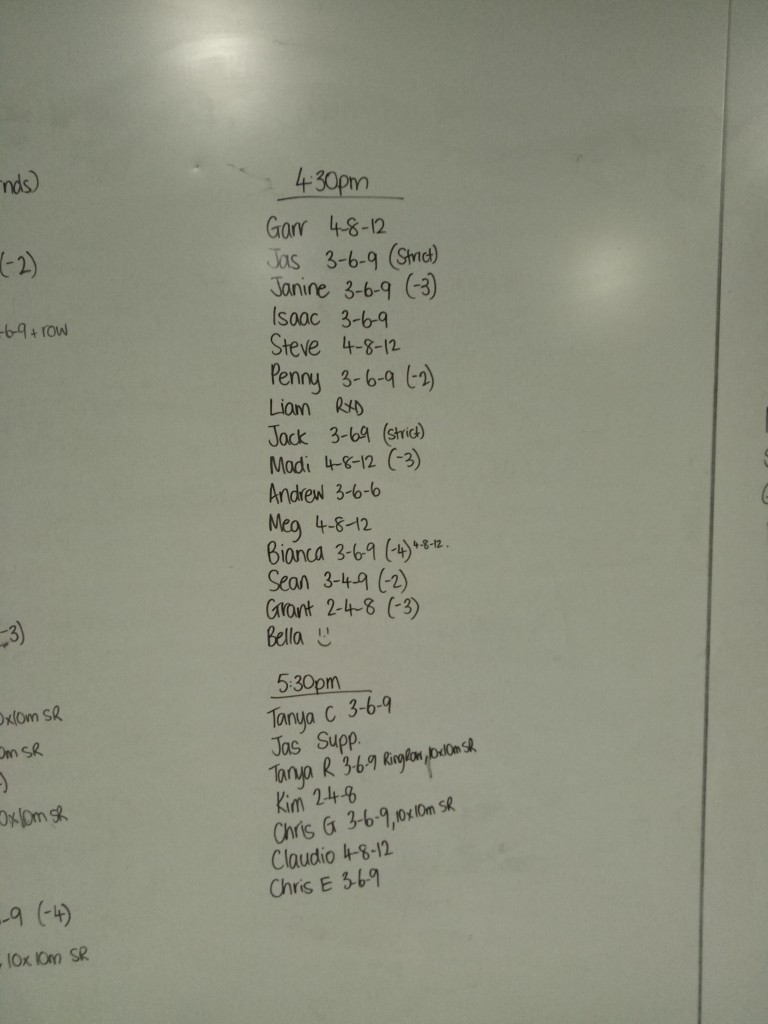 nds)
(-2)
-6-9 + row
-3)
0x10m SR
0m SR
)
0x10m SR
-9 (-4)
10x10m SR
4:30pm
Garr 4-8-12
Jas 3-6-9 (Strict)
Janine 3-6-9 (-3)
Isaac 3-6-9
Steve 4-8-12
Penny 3-6-9 (-2)
Liam RXD
Jack 3-69 (strict)
Madi 4-8-12 (-3)
Andrew 3-6-6
Meg 4-8-12
Bianca 3-6-9 (-4) 4-8-12.
Sean 3-4-9 (-2)
Grant 2-4-8 (-3)
Bella
5:30pm
Tanya C 3-6-9
Jas Supp.
Tanya R 3-6-9 Ring Row, 10x10m SR
Kim 2-4-8
Chris G 3-6-9, 10x10m SR
Claudio 4-8-12
Chris E 3-6-9